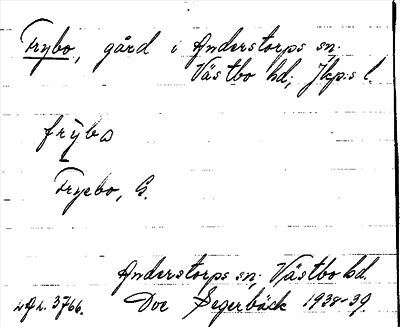 Frybo, gård i Anderstorps sn.
Västbo hd; Jkp:s l.
frybo
Fryebo, G.
Anderstorps sn; Västbo hd.
3766. Segerbäck 1938-39